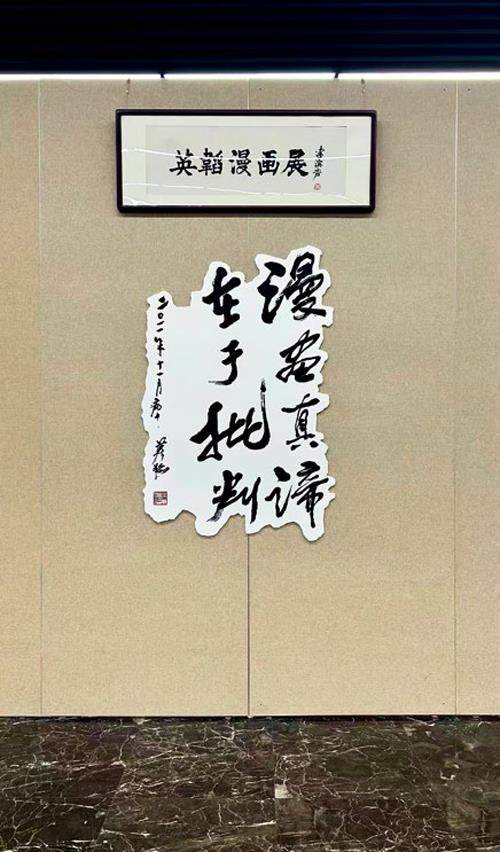 英韬漫画展
李滨声
漫画真谛
在于批判
二〇一一年十一月
英韬